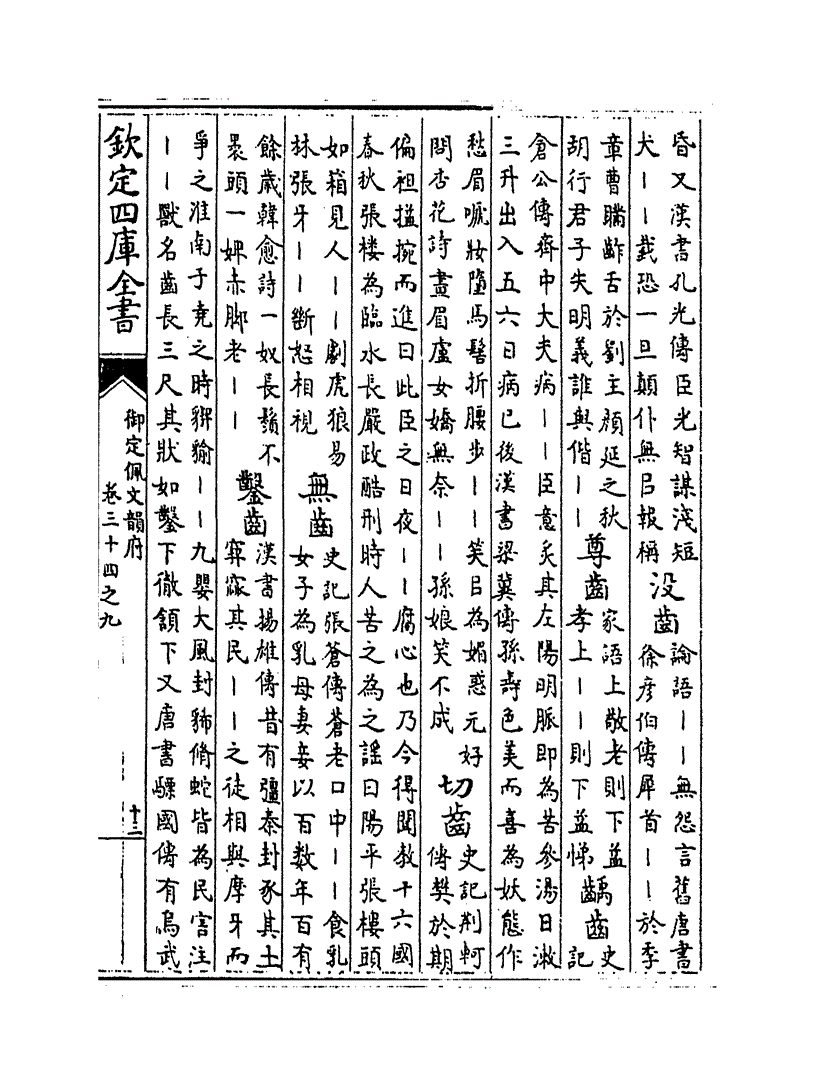 昏又漢書孔光傳臣光智謀淺短
犬丨丨臷恐一旦顛仆無㠯報稱
没齒
論語丨丨無怨言舊唐書
徐彥伯傳犀首丨丨於季
章曹瞞齰舌於劉主顏延之秋
胡行君子失明義誰與偕丨丨
尊齒
家語上敬老則下益
孝上丨丨則下益悌
齲齒
史
記
倉公傳齊中大夫病丨丨臣意炙其左陽明脈即為苦參湯日漱
三升出入五六日病已後漢書梁冀傳孫壽色美而喜為妖態作
愁眉嗁妝墮馬髻折腰步丨丨笑㠯為媚惑元好
問杏花詩畫眉盧女嬌無奈丨丨孫娘笑不成
切齒
史記荆軻
傳樊於期
偏袒搤捥而進曰此臣之日夜丨丨腐心也乃今得聞教十六國
春秋張樓為臨水長嚴政酷刑時人苦之為之謡曰陽平張樓頭
如箱見人丨丨劇虎狼易
林張牙丨丨斷怒相視
無齒
史記張蒼傳蒼老口中丨丨食乳
女子為乳母妻妾以百數年百有
餘歲韓愈詩一奴長鬚不
裹頭一婢赤脚老丨丨
鑿齒
漢書揚雄傳昔有彊秦封豕其土
窫窳其民丨丨之徒相與摩牙而
爭之淮南子堯之時猰貐丨丨九嬰大風封豨脩蛇皆為民害注
丨丨獸名齒長三尺其狀如鑿下徹頷下又唐書驃國傳有烏武
欽定四庫全書
御定佩文韻府
卷三十四之九
十三